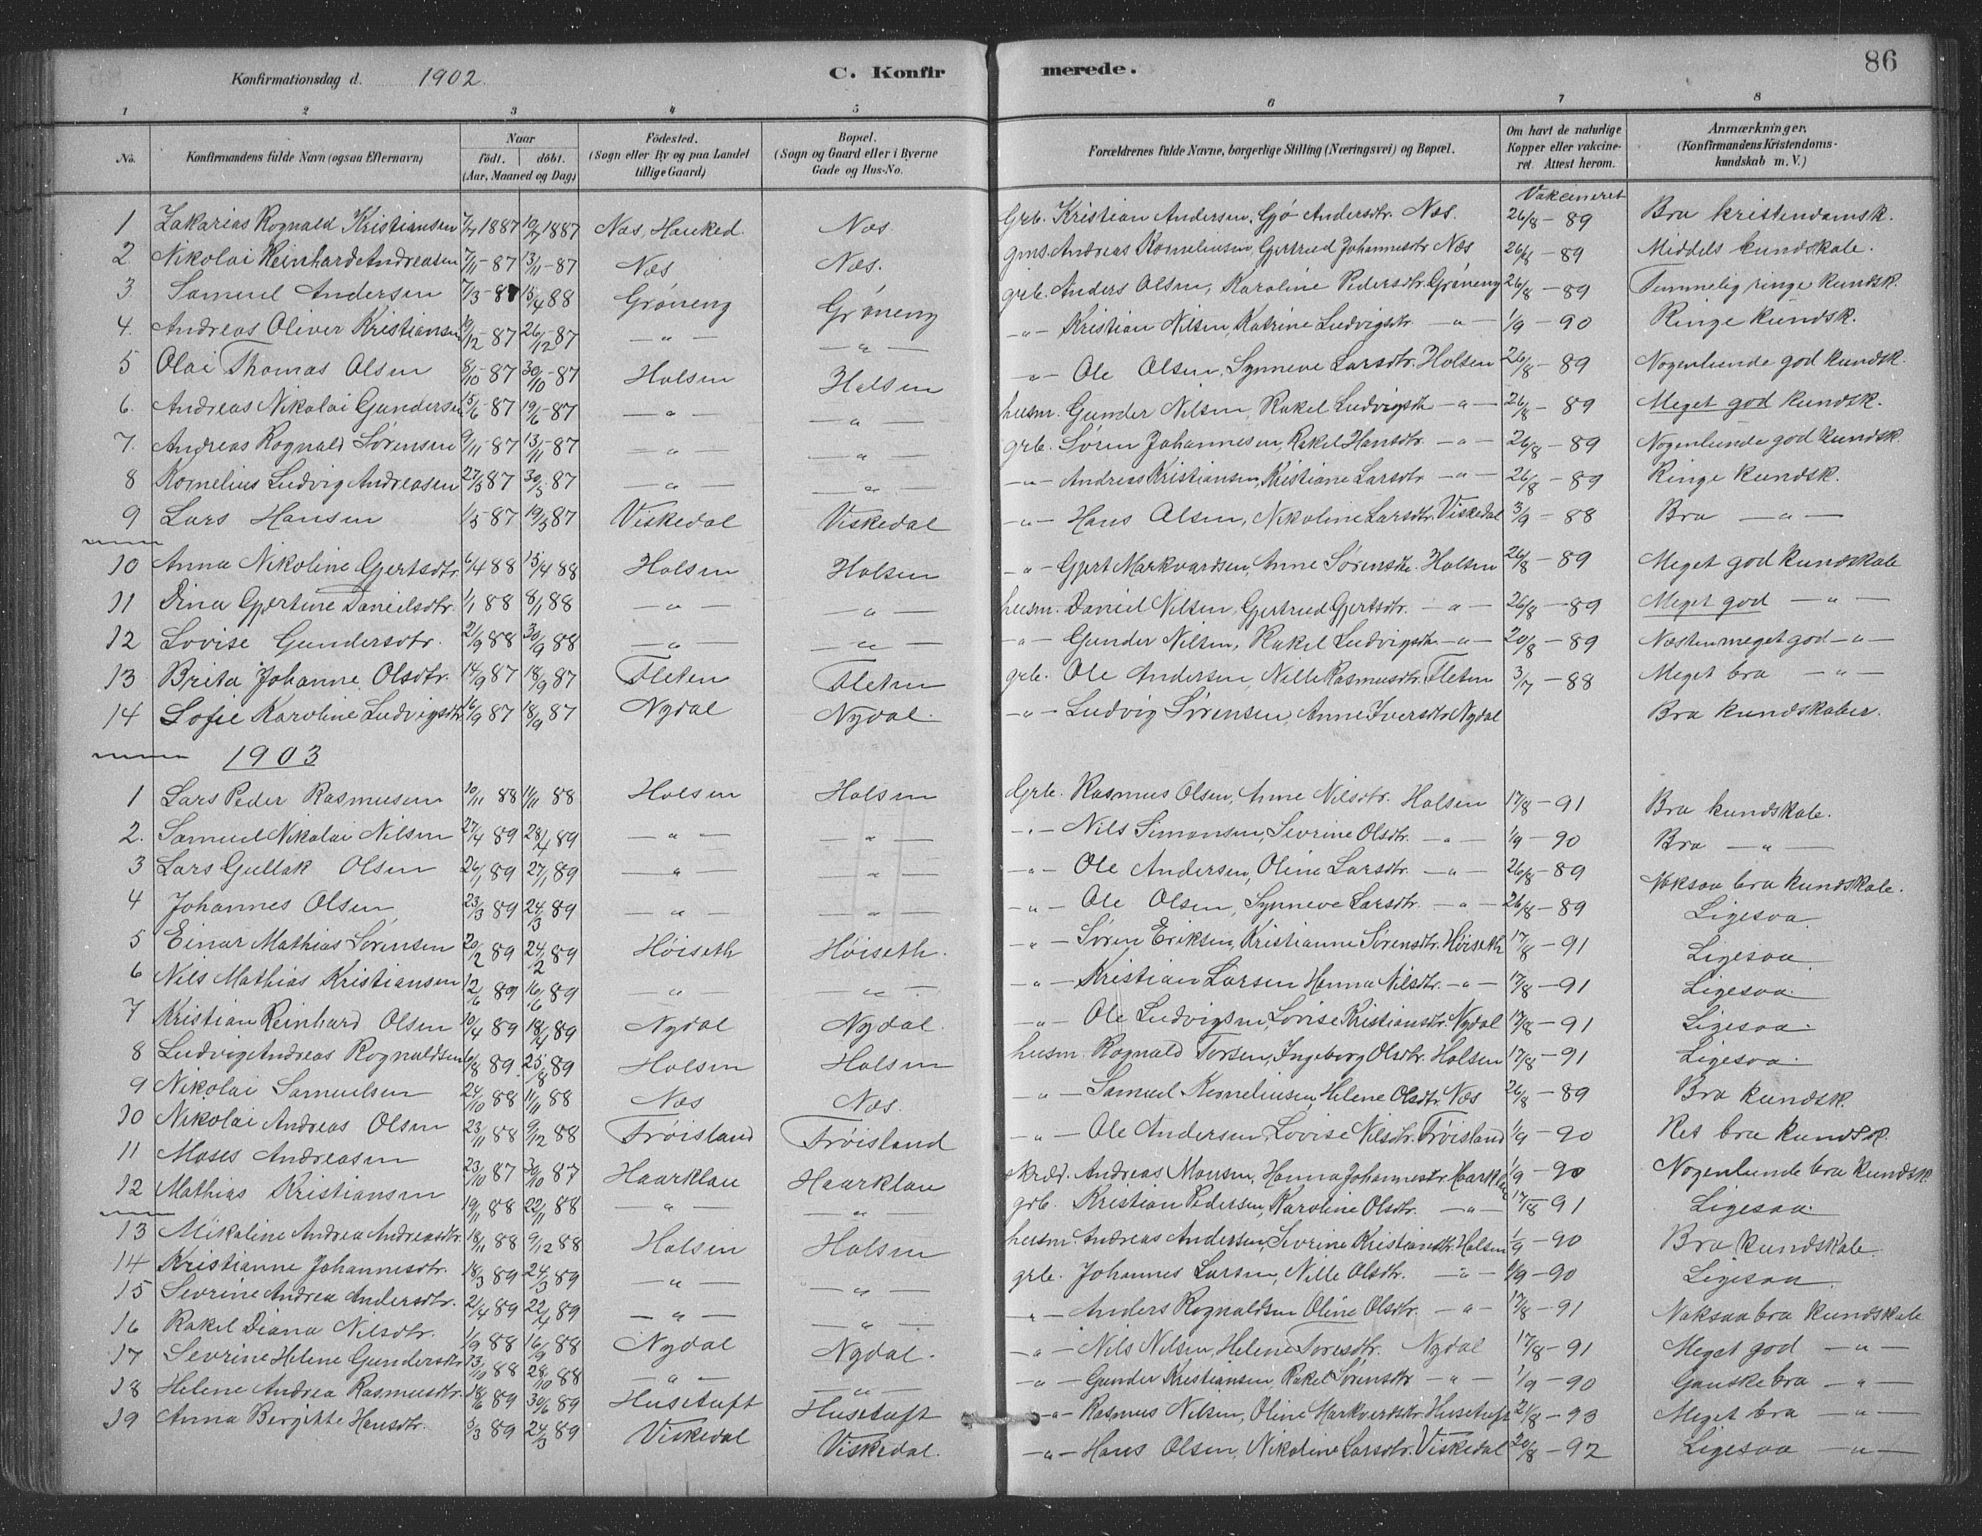 86
Konfirmationsdag d. 1902. C. Konfirmerede.
1 2 3 4 5 6 7 8
No. Konfirmandens fulde Navn (ogsaa Efternavn) Naar født. døbt. (Aar, Maaned og Dag) Fødested. (Sogn eller By og paa Landet tillige Gaard) Bopæl. (Sogn og Gaard eller i Byerne Gade og Hus-No. Forældrenes fulde Navne, borgerlige Stilling (Næringsvei) og Bopæl. Om havt de naturlige Kopper eller vaccineret. Attest herom. Anmærkninger. (Konfirmandens Kristendomskundskab m. V.)
Vakcineret
1 Zakarias Rognald Kristiansen 7/7 1887 10/7 1887 Næs, Hauked. Næs Grb. Kristian Andersen, Gjø Andersdtr. Næs. 26/8 - 89 Bra kristendomsk.
2 Nikolai Reinhard Andreasen 7/11 - 87 13/11 - 87 Næs Næs. gms. Andreas Kornelinsen, Gjertrud Johannesdtr Næs 26/8 - 89 Middels kundskab.
3 Samuel Andersen 7/3 - 88 15/4 88 Grøneng Grøneng grb. Anders Olsen, Karoline Pedersdtr. Grøneng 26/8 - 89 Temmelig ringe kundsk.
4. Andreas Oliver Kristiansen 10/12 - 87 26/12 87 — „ — — „ — - „ - Kristian Nilsen, Katrine Ludvigsdtr — „ — 1/9 - 90 Ringe kundsk.
5 Olai Thomas Olsen 8/10 - 87 30/10 - 87 Holsen Holsen - „ - Ole Olsen, Synneve Larsdtr. Holsen 26/8 - 89 Nogenlunde god kundsk.
6. Andreas Nikolai Gundersen 15/6 - 87 19/6 - 87 — „ — — „ — husm. Gunder Nilsen, Rakel Ludvigsdtr — „ — 26/8 - 89 Meget god kundsk.
7. Andreas Rognald Sørensen 9/11 - 87 13/11 - 87 — „ — — „ — grb. Søren Johannesen, Rakel Hansdtr. — „ — 26/8 - 89 Nogenlunde god kundsk.
8 Kornelius Ludvig Andreasen 27/3 87 30/3 - 87 — „ — — „ — - „ - Andreas Kristiansen, Kristiane Larsdtr — „ — 26/8 - 89 Ringe kundsk.
9 Lars Hansen 1/5 - 87 19/5 87 Viskedal Viskedal - „ - Hans Olsen, Nikoline Larsdtr. Viskedal 3/9 - 88 Bra — „ —
10 Anna Nikoline Gjertsdtr. 6/4 88 15/4 88 Holsen Holsen - „ - Gjert Markvardsen, Anne Sørensdtr. Holsen 26/8 - 89 Meget god kundskab
11 Dina Gjertine Danielsdtr. 1/1 88 8/1 88 — „ — — „ — husm. Daniel Nilsen, Gjertrud Gjertsdtr. — „ — 26/8 - 89 Meget god — „ —
12 Lovise Gundersdtr. 21/9 88 30/9 88 — „ — — „ — - „ - Gunder Nilsen, Rakel Ludvigsdtr — „ — 20/8 - 89 Næsten meget god — „ —
13 Brita Johanne Olsdtr. 14/9 87 18/9 87 Fleten Fleten grb. Ole Andersen, Nille Rasmusdtr. Fleten 3/7 - 88 Meget bra — „ —
14 Sofie Karoline Ludvigsdtr. 16/9 87 18/9 87 Nydal Nydal. - „ - Ludvig Sørensen, Anne Iversdtr Nydal Bra kundskaber.
1903
1 Lars Peder Rasmusen 10/11 88 11/11 88 Holsen Holsen Grb. Rasmus Olsen, Anne Nilsdtr. Holsen 17/8 - 91 Bra kundskab.
2. Samuel Nikolai Nilsen 27/4 89 28/4 89 — „ — — „ — - „ - Nils Simonsen, Sevrine Olsdtr. — „ — 1/9 - 90 Bra — „ —
3 Lars Gullak Olsen 26/1 89 27/1 89 — „ — — „ — - „ - Ole Andersen, Oline Larsdtr. — „ — 26/8 - 89 Noksaa bra kundskab.
4 Johannes Olsen 23/3 89 24/3 89 — „ — — „ — - „ - Ole Olsen, Synneve Larsdtr. — „ — 26/8 - 89 Ligesaa
5 Einar Mathias Sørensen 20/2 89 24/2 89 Høiseth Høiseth. - „ - Søren Eriksen, Kristianne Sørensdtr. Høiseth 17/8 - 91 Ligesaa
6 Nils Mathias Kristiansen 12/6 89 16/6 89 — „ — — „ — - „ - Kristian Larsen Hanna Nilsdtr. — „ — 17/8 - 91 Ligesaa.
7 Kristian Reinhard Olsen 10/4 89 18/4 89 Nydal Nydal. - „ - Ole Ludvigsen, Lovise Kristiansdtr. Nydal 17/8 - 91 Ligesaa.
8 Ludvig Andreas Rognaldsen 16/8 89. 25/8 89 Holsen Holsen husm. Rognald Torsen, Ingeborg Olsdtr. Holsen 17/8 - 91 Ligesaa.
9 Nikolai Samuelsen 24/10 88 11/11 88 Næs Næs. - „ - Samuel Kornelinsen Helene Olsdtr. Næs 26/8 - 89 Bra kundsk.
10 Nikolai Andreas Olsen 23/11 88 9/12 88 Frøisland Frøisland - „ - Ole Andersen, Lovise Nilsdtr. Frøisland 1/9 - 90 Ret bra kundsk.
11 Moses Andreasen 23/10 87 30/10 87 Haarklau Haarklau skræd. Andreas Monsen, Hanna Johannesdtr. Haarklau 1/9 - 90 Nogenlunde bra kundsk.
12 Mathias Kristiansen 19/11 88 22/11 88 — „ — — „ — grb. Kristian Pedersen, Karoline Olsdtr. — „ — 17/8 - 91 Ligesaa.
13 Mikaline Andrea Andreasdtr. 18/11 88 9/12 88 Holsen Holsen husm. Andreas Andersen, Sevrine Kristiansdtr. Holsen 1/9 - 90 Bra kundskab.
14 Kristianne Johannesdtr. 18/3 89 24/3 89 — „ — — „ — grb. Johannes Larsen, Nille Olsdtr. — „ — 1/9 - 90 Ligesaa
15 Sevrine Andrea Andersdtr. 21/4 89 22/4 89 — „ — — „ — „ - Anders Rognaldsen Oline Olsdtr. — „ — 17/8 - 91 Noksaa bra kundskab
16 Rakel Diana Nilsdtr. 1/9 88 16/9 88 Nydal Nydal. - „ - Nils Nilsen, Helene Toresdtr. Nydal 17/8 - 91 Meget god — „ —
17 Sevrine Helene Gundersdtr 13/10 88 28/10 88 — „ — — „ — - „ - Gunder Kristiansen Rakel Sørensdtr — „ — 1/9 - 90 Ganske bra — „ —
18 Helene Andrea Rasmusdtr. 18/6 89 30/6 89 Husetuft Husetuft - „ - Rasmus Nilsen, Oline Markvardsdtr Husetuft 21/8 - 93 Meget bra — „ —
19 Anna Birgitte Hansdtr. 5/3 89 24/3 89 Viskedal Viskedal. - „ - Hans Olsen, Nikoline Larsdtr. Viskedal 20/8 - 92 Ligesaa — „ —